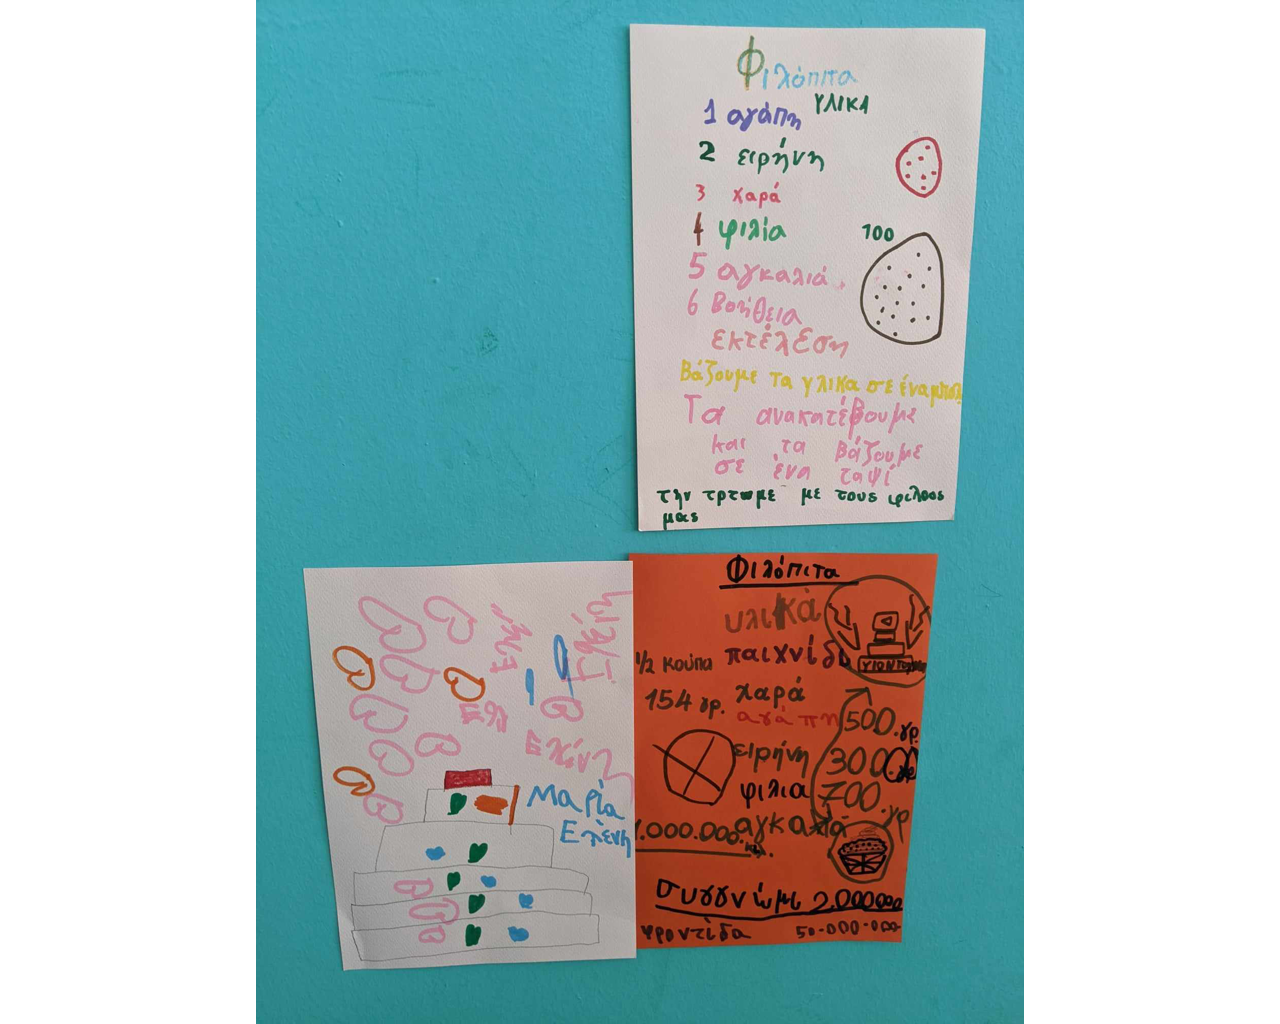 Φιλόπιτα
γλικα
1 αγάπη
2 ειρήνη
3 χαρά
4 φιλία
5 αγκαλιά
6 Βοήθεια
εκτέλεση
Βάζουμε τα γλικα σε ένα μπολ
Τα ανακατέβουμε
και τα βάζουμε
σε ένα ταψί
την τρτωμε με τους φιλοος
μας
100
Μαρία
Ελένη
Φιλόπιτα
υλικά
1/2 κούπα παιχνίδι
154 γρ. χαρά
αγάπη 500 γρ.
ειρήνη 3000 γρ
φιλια 700 γρ
1.000.000 αγκαλιά
συγγνώμι 2.000000
φροντίδα 50-000-000